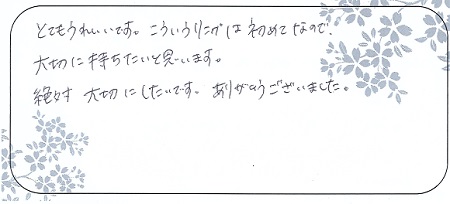 とてもうれしいです。こういうリングは初めてなので、
大切に持ちたいと思います。
絶対 大切にしたいです。ありがとうございました。